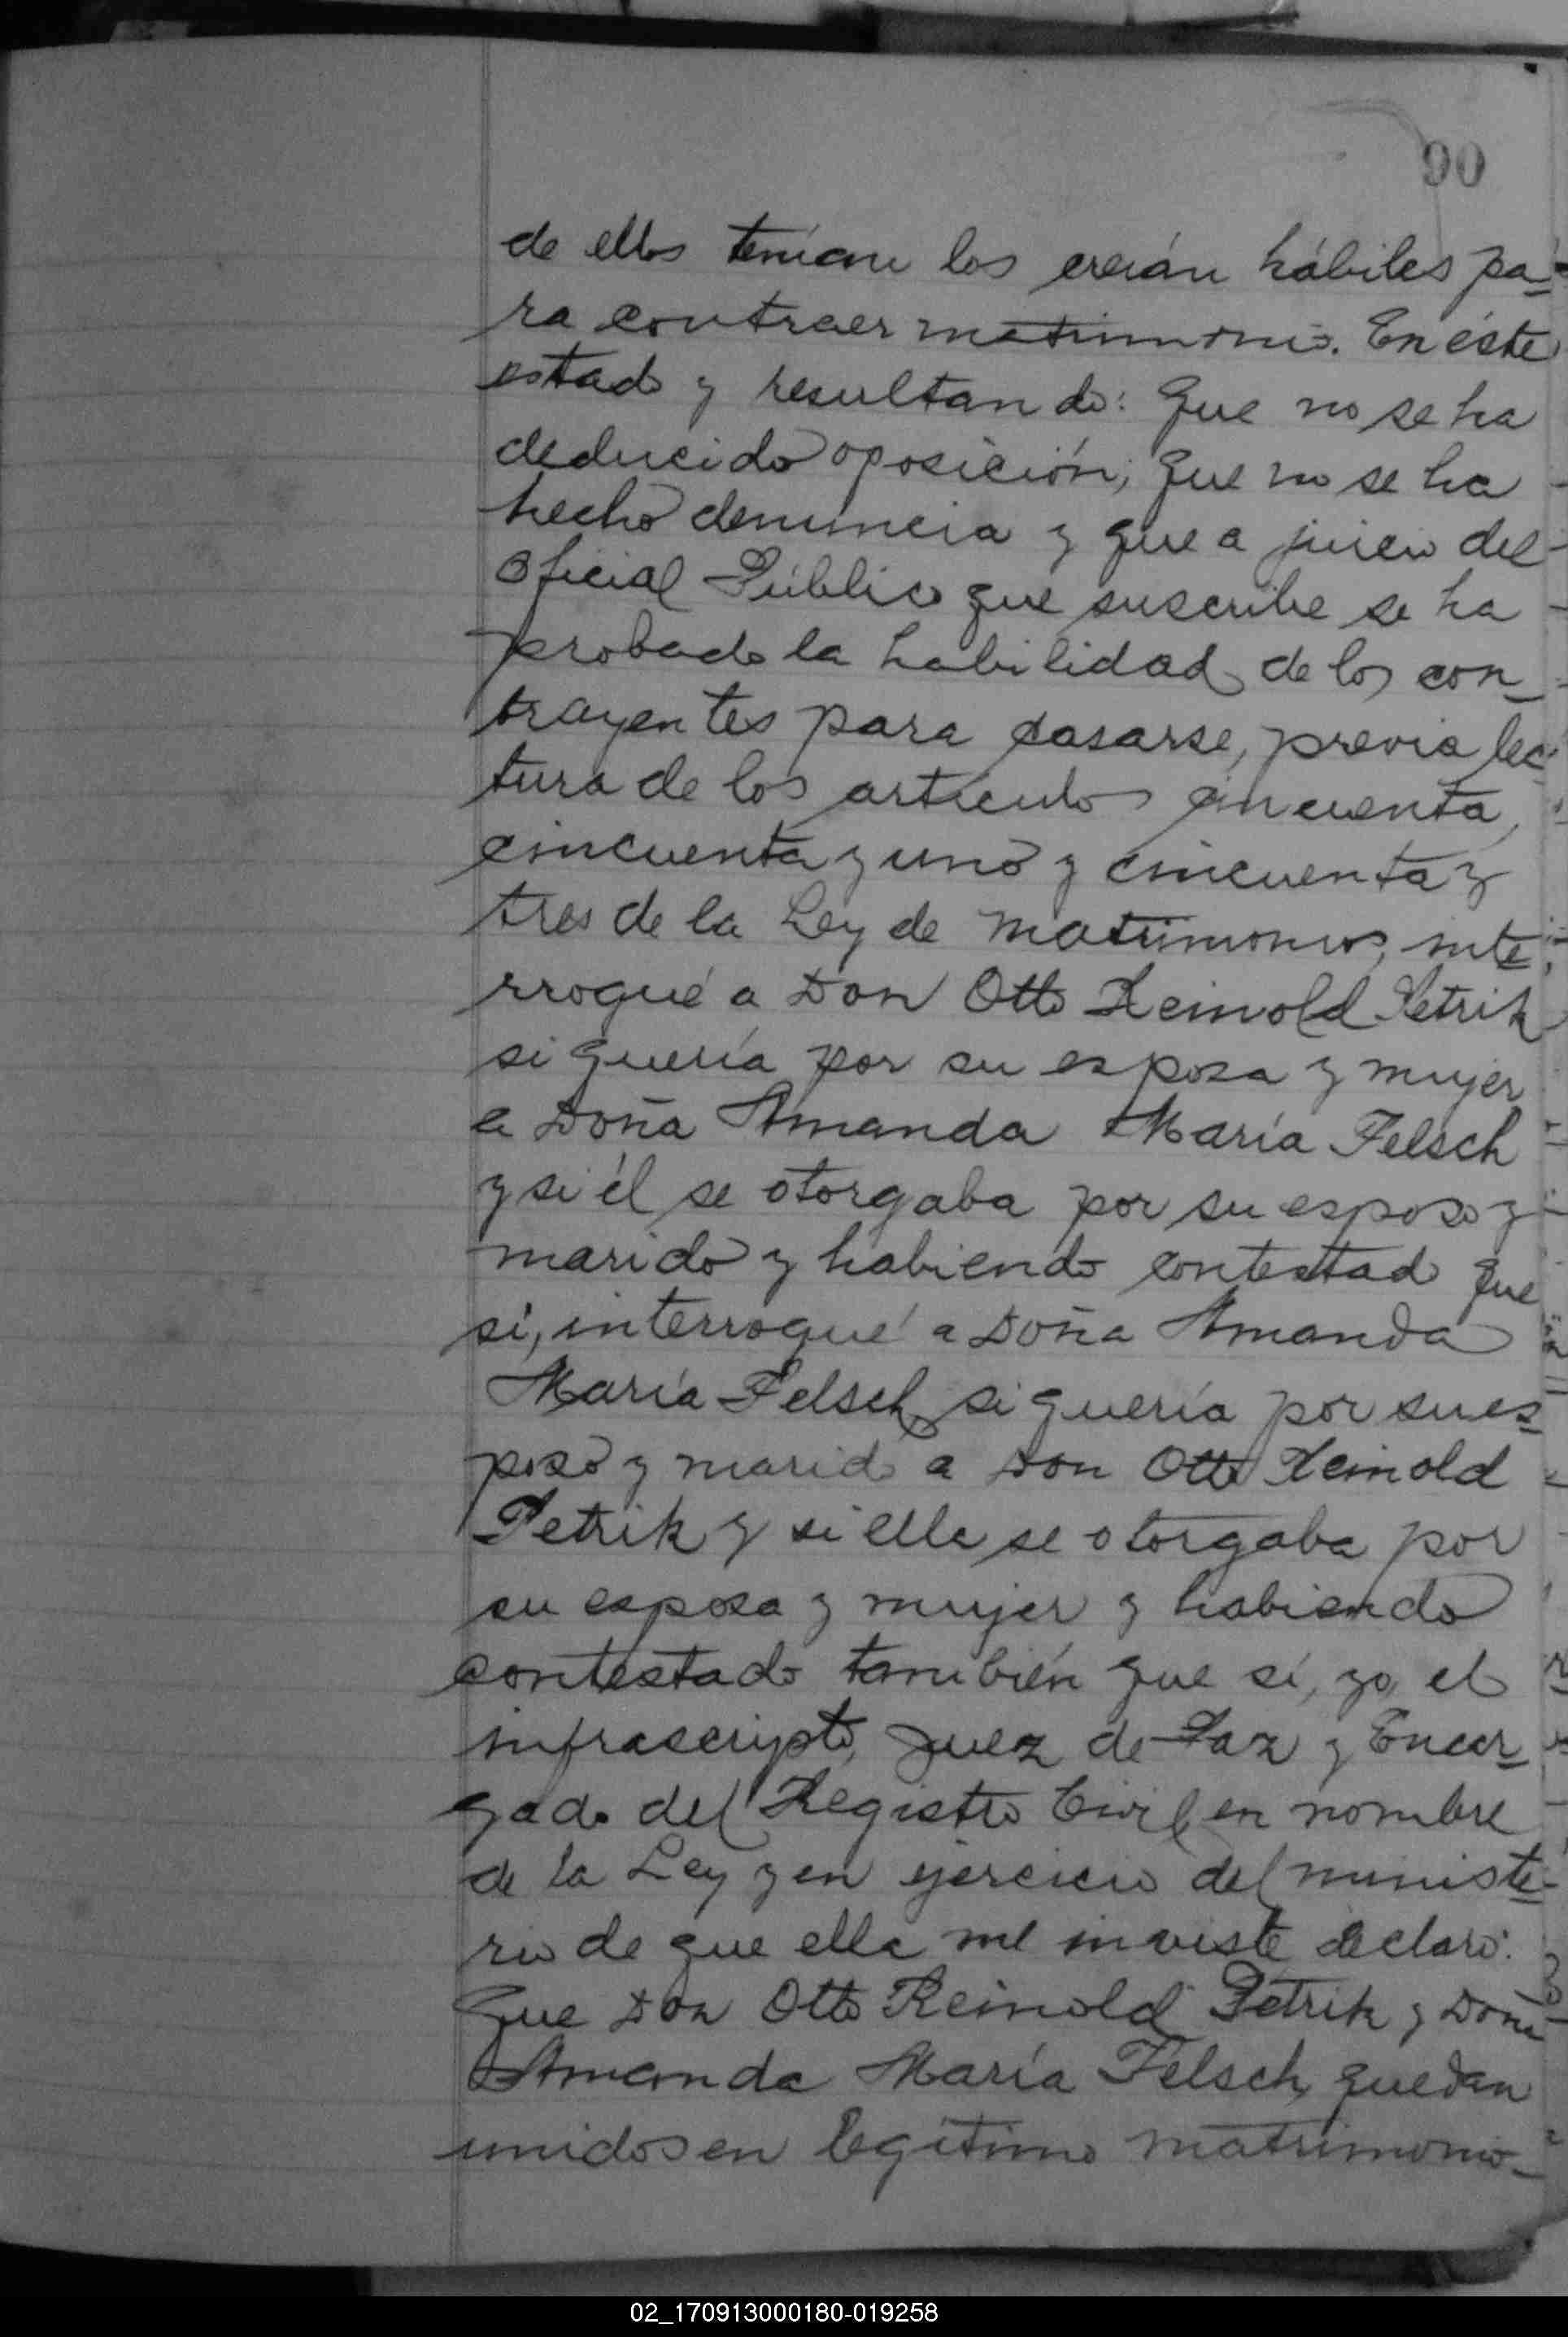 90
de ellos tenían los creían hábiles pa=
ra contraer matrimonio. En éste
estado y resultando: Que no se ha
deducido oposición; que no se ha
hecho denuncia y que a juicio del
Oficial Público que suscribe se ha
probado la habilidad de los con=
trayentes para casarse, previa lec=
tura de los artículos cincuenta,
cincuenta y uno y cincuenta y
tres de la Ley de Matrimonios, inte=
rrogué a Don Otto Reinold Petrik
si quería por su esposa y mujer
a Doña Amanda María Felsch
y si él se otorgaba por su esposo y
marido y habiendo contestado que
sí, interrogué a Doña Amanda
María Felsch, si quería por su es=
poso y marido a Don Otto Reinold
Petrik y si ella se otorgaba por
su esposa y mujer y habiendo
contestado también que sí, yo, el
infrascripto, Juez de Paz y Encar=
gado del Registro Civil, en nombre
de la Ley y en ejercicio del ministe=
rio de que ella me inviste declaro:
Que Don Otto Reinold Petrik y Doña
Amanda María Felsch, quedan
unidos en legítimo matrimonio=
02_170913000180-019258